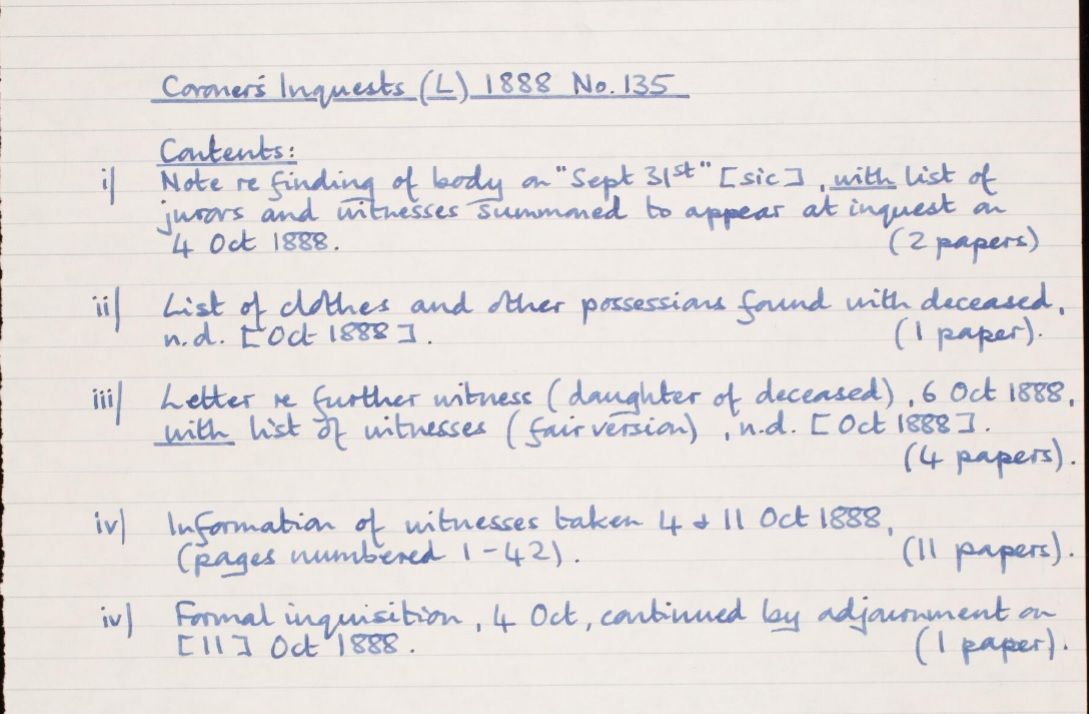 Coroner's Inquests (L) 1888 No. 135
Contents:
i) Note re finding of body on "Sept 31st" [sic], with list of
jurors and witnesses summoned to appear at inquest on
4 Oct 1888. (2 papers)
ii) List of clothes and other possessions found with deceased,
n.d. [Oct 1888]. (1 paper).
iii) Letter re further witness (daughter of deceased), 6 Oct 1888,
with list of witnesses (fair version), n.d. [Oct 1888].
(4 papers).
iv) Information of witnesses taken 4 & 11 Oct 1888,
(pages numbered 1-42). (11 papers).
iv) Formal inquisition, 4 Oct, continued by adjournment on
[11] Oct 1888. (1 paper).